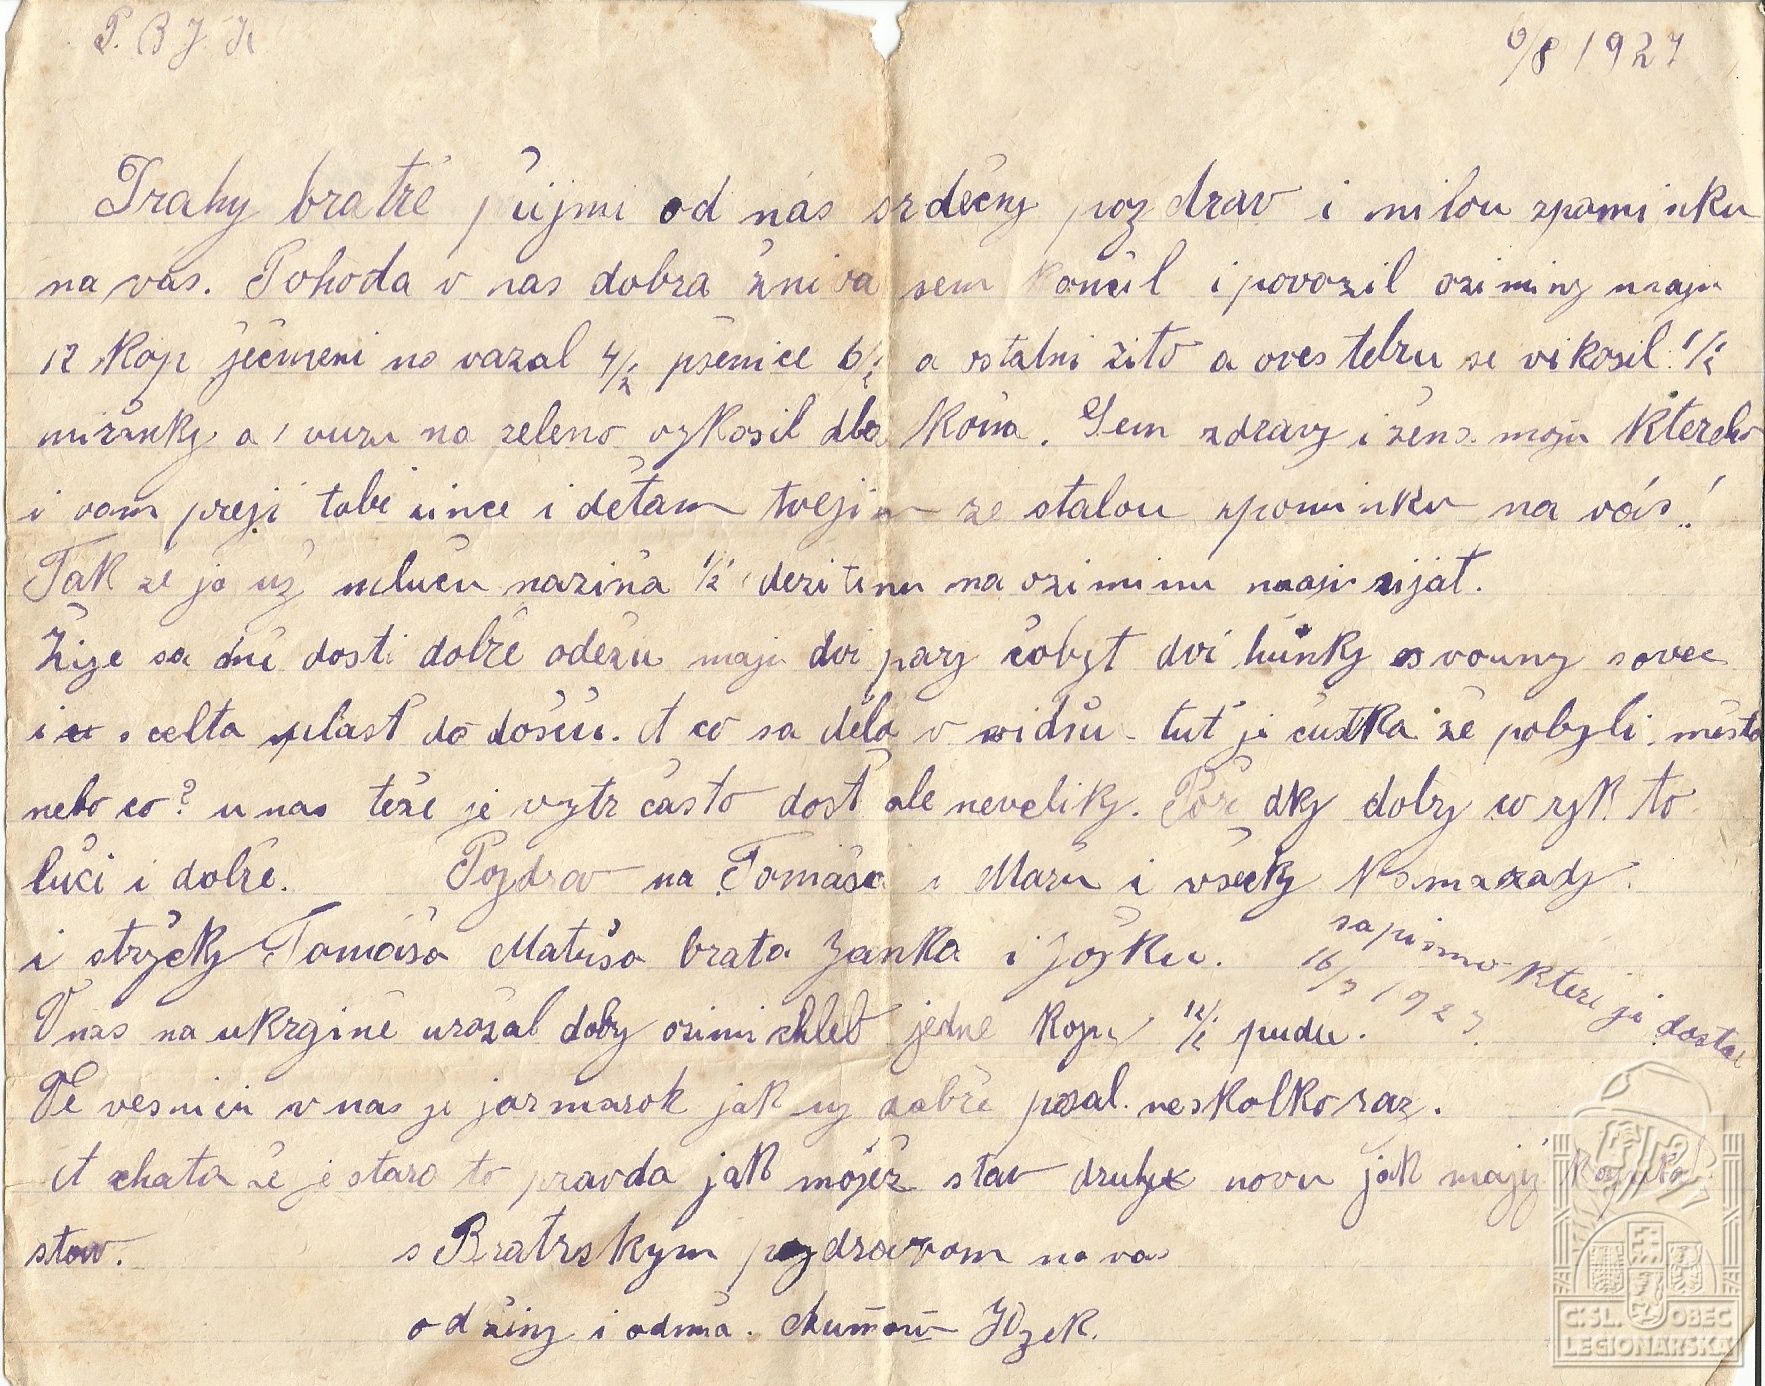 P. B J. K
6/8 1927
Trahy bratře půjmi od nás srdečny pozdrav i milou zpominku
na vas. Pohoda v nas dobra žniva sem končil i povozil oziminy maju
12 kop ječmeni no vazal 4/½ pšenice 6/½ a ostalni žito a oves tebru se vikosil 1/½
miřinky a 1 vuzu na zeleno vykosil dla koňa. Sem zdravy i žena moju kterého
i vam preji tobě žince i dětam tvejim ze stalou zpominku na vás!
Tak že jo už mluču nazina 1/2 dezitinu na oziminu maju sijat.
Žije sa mě dosti dobře odežu maju dvi pary čobyt dvi huňky osvouny sovec
i s celta plašť do doščů. A co sa děla v vidňu tuť je čutka že pobyli města
nebo co? u nas teže je vytr často dosť ale neveliky. Pořadky dobry co zyk to
lučí i dobře. Pozdrav na Tomáša i Mařu i všecky Kamarady.
i strýčky Tomáša Matuša brata Janka i Jožku.
sa pismo kteri ji dostal
16/7 1927
V nas na ukrgině urožal doby ozimi chleb jedne kopy 12/½ pudu.
Ve vesnicu v nas je jarmarok jak uz dobře pisal neskolko raz.
A chata že je stara to pravda jak možeš stav druhyx novu jak maju
stav. s Bratrskym pozdravom na vas
od žiny i odmňa. Jozek.
C.SL. OBEC
LEGIONÁŘSKÁ